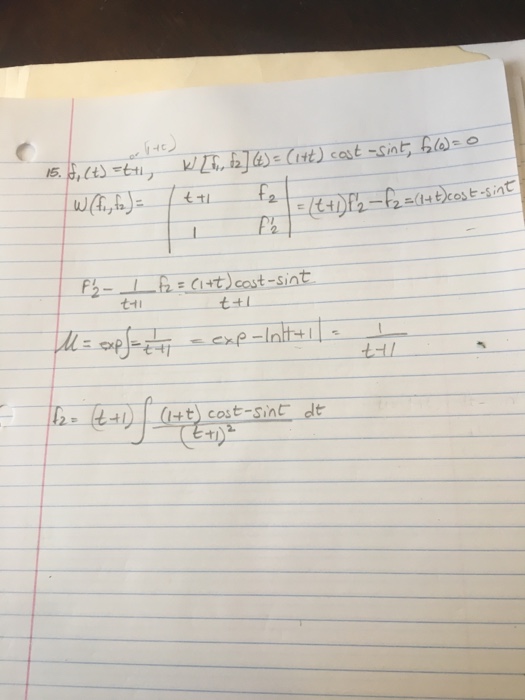 or (1+c)
15. f₁(t) = t+1, W[f₁, f₂](t) = (1+t) cost - sint, f₂(0) = 0
W(f₁, f₂) = | t+1 f₂ | = (t+1)f'₂ - f₂ = (1+t)cost-sint
| 1 f'₂ |
f'₂ - 1/(t+1) f₂ = ((1+t)cost-sint)/(t+1)
μ = exp∫-1/(t+1) = exp -ln|t+1| = 1/(t+1)
f₂ = (t+1) ∫ ((1+t) cost-sint)/(t+1)² dt